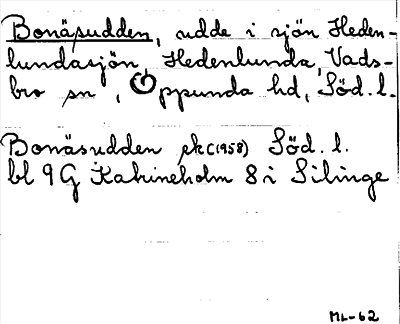 Bonäsudden, udde i sjön Heden-
lundasjön, Hedenlunda, Vads-
bro sn, Oppunda hd, Söd. l.
Bonäsudden ek (1958) Söd. l.
bl 9 G Katrineholm 8 i Silinge
ML-62